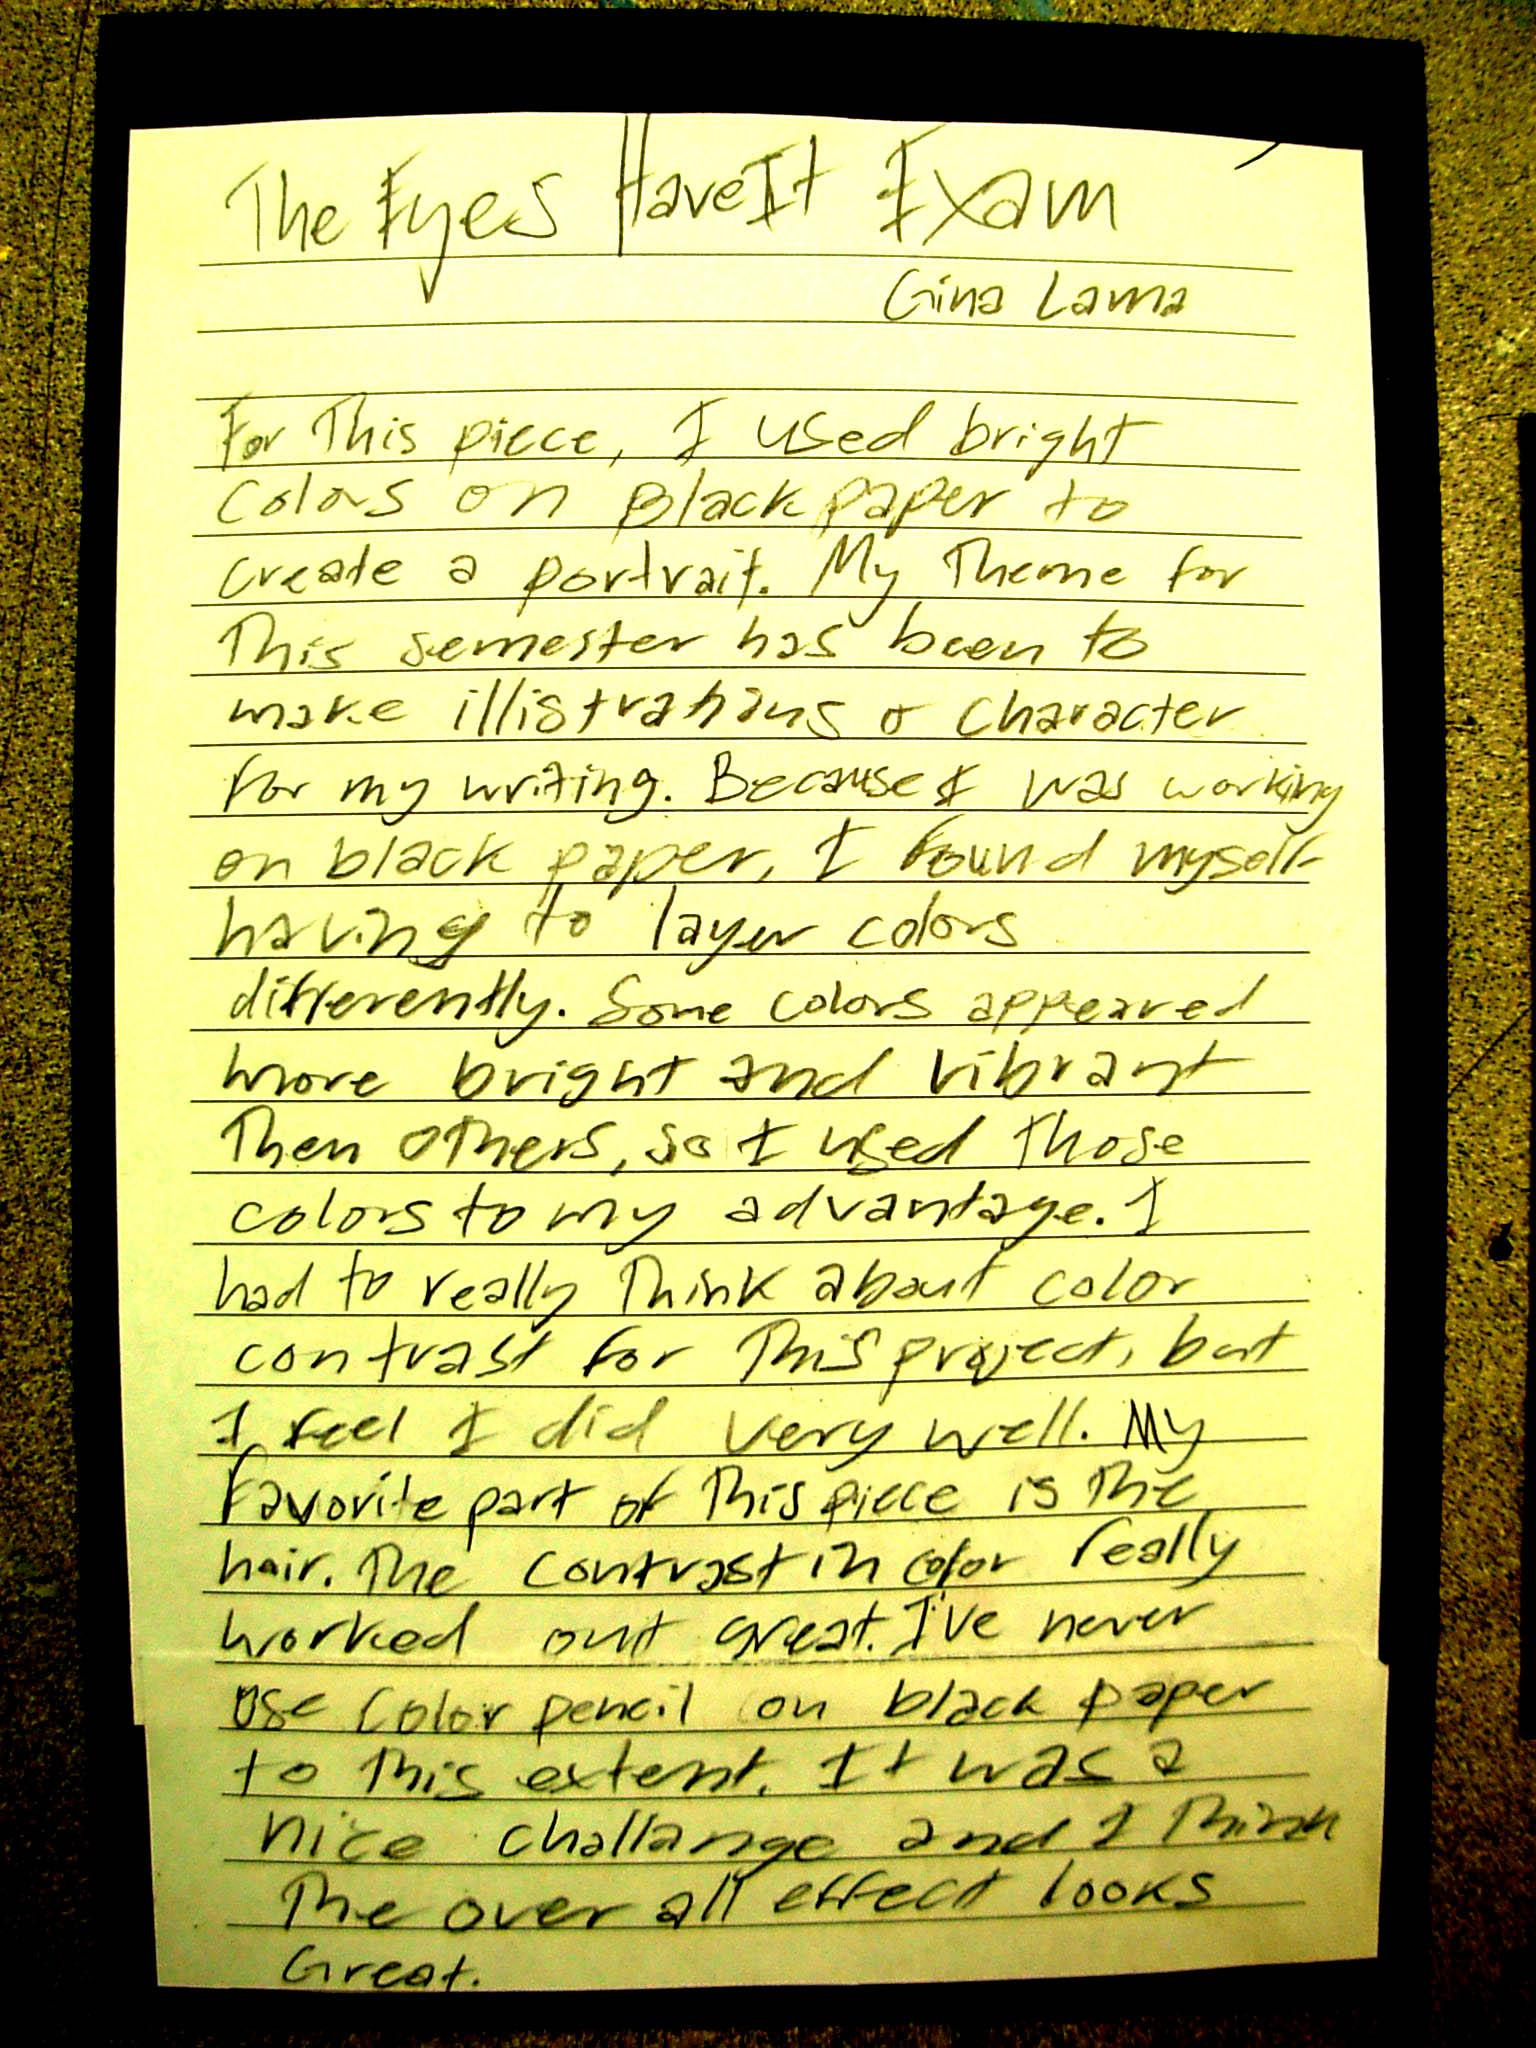 The Eyes Have It Exam
Gina Lama
For This piece, I used bright
colors on Black paper to
create a portrait. My Theme for
This semester has been to
make illistrations & character
for my writing. Because I was working
on black paper, I found myself
having to layer colors
differently. Some colors appeared
more bright and vibrant
Then others, so I used those
colors to my advantage. I
had to really Think about color
contrast for This project, but
I feel I did very well. My
Favorite part of This piece is The
hair. The contrast in color really
worked out great. I've never
use color pencil on black paper
to This extent. It was a
nice challange and I Think
The over all effect looks
Great.